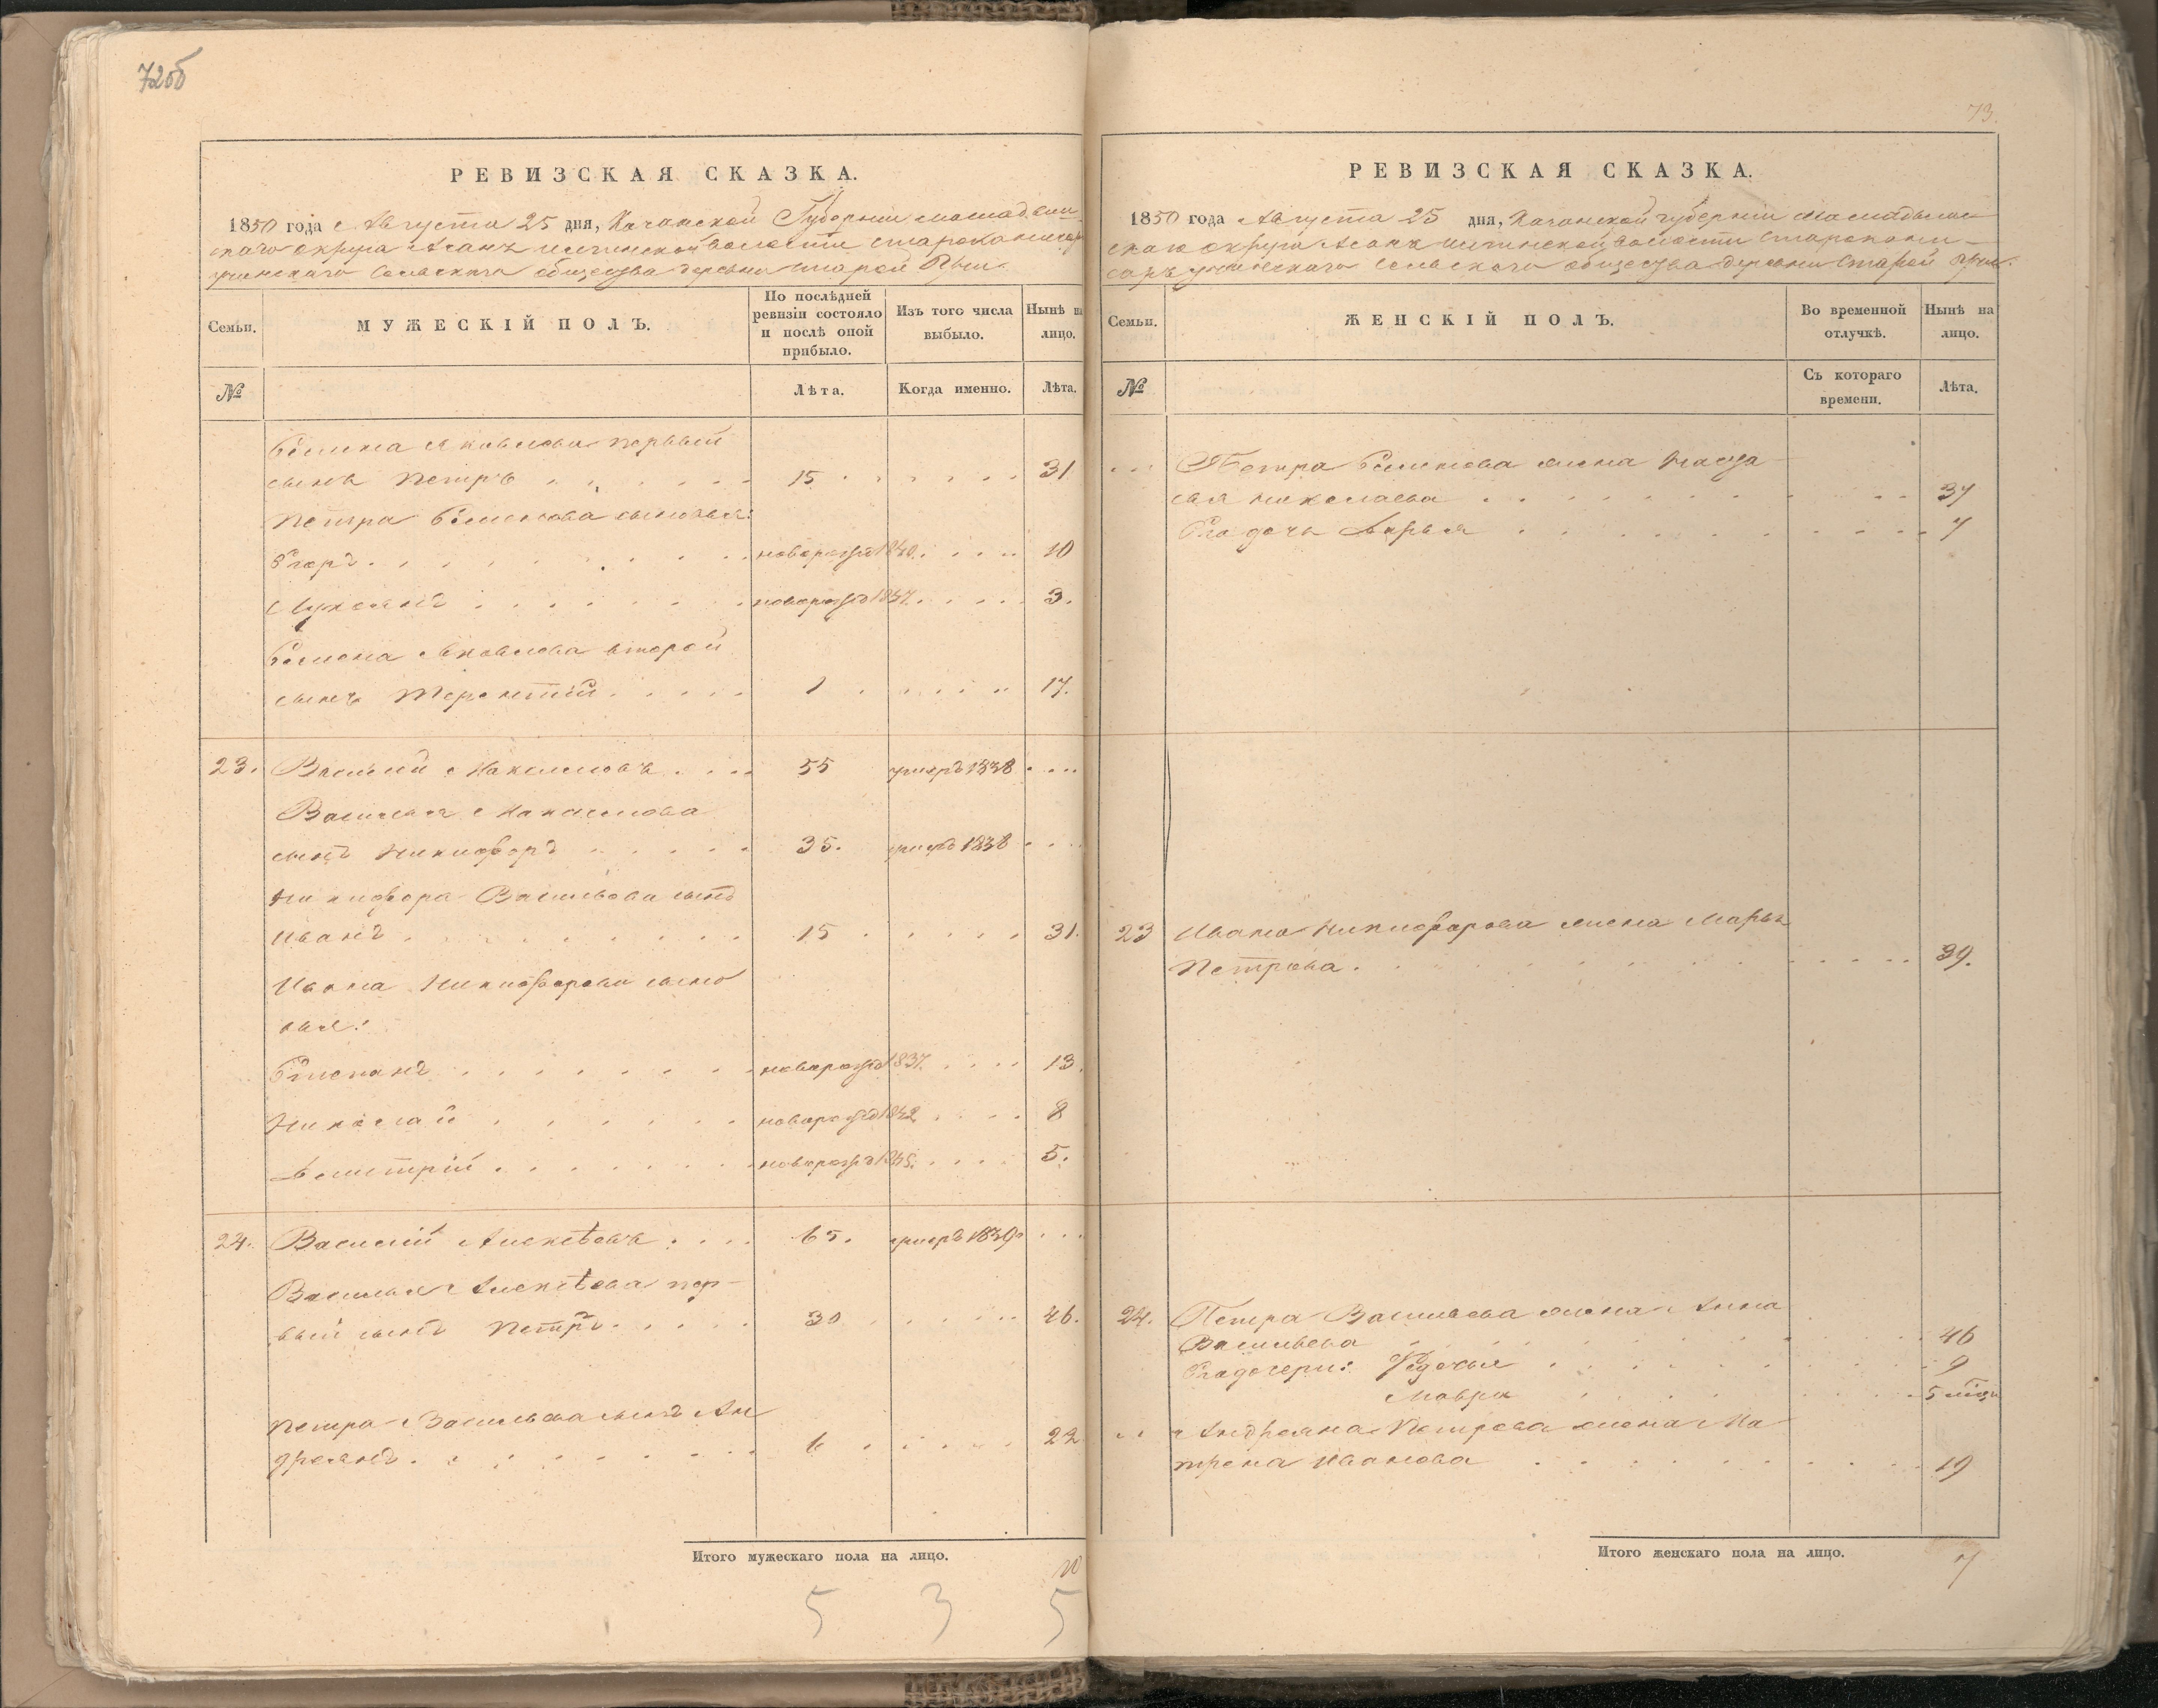 72об
РЕВИЗСКАЯ СКАЗКА.
1850 года Августа 25 дня, Казанской Губерніи Мамадыш
скаго округа волости
Сельскаго общества деревни Старой
Семьи.
МУЖЕСКІЙ ПОЛЪ.
По послѣдней
ревизіи состояло
и послѣ оной
прибыло.
Изъ того числа
выбыло.
Нынѣ на
лицо.
№
Лѣта.
Когда именно.
Лѣта.
Яковлева первый
сынъ Петръ 15 31
Петра сыновья:
Егоръ новорожд 1840. 10
новорожд 1847. 3.
Яковлева второй
сынъ Терентій 1 17.
23. Василій Максимовъ 55 умеръ 1838
Василья Максимова
сынъ Никифоръ 35. умеръ 1838
Никифора Васильева сынъ
Иванъ 15 31.
Ивана Никифорова сыно
вья:
Степанъ новорожд 1837. 13.
Николай новорожд 1842 8
Дмитрій новорожд 1845. 5.
24. Василій Алексѣевъ 65. умеръ 1839
Василья Алексѣева пер-
вый сынъ Петръ 30 46.
Петра Васильева сынъ Ан
дреянъ 6 22
Итого мужескаго пола на лицо. 10
5 3 5
73.
РЕВИЗСКАЯ СКАЗКА.
1850 года Августа 25 дня, Казанской губерніи Мамадыш
скаго округа волости
Сельскаго общества деревни Старой
Семьи.
ЖЕНСКІЙ ПОЛЪ.
Во временной
отлучкѣ.
Нынѣ на
лицо.
№
Съ котораго
времени.
Лѣта.
Петра жена Настa
сья Николаева 37
Егo дочь Дарья 7
23 Ивана Никифорова жена Марья
Петрова 39.
24. Петра Васильева жена Анна
Васильева 46
Его дочери: Федосья 9
Мавра 5 мѣся
Андреяна Петрова жена Ма
трена Иванова 19
Итого женскаго пола на лицо. 7